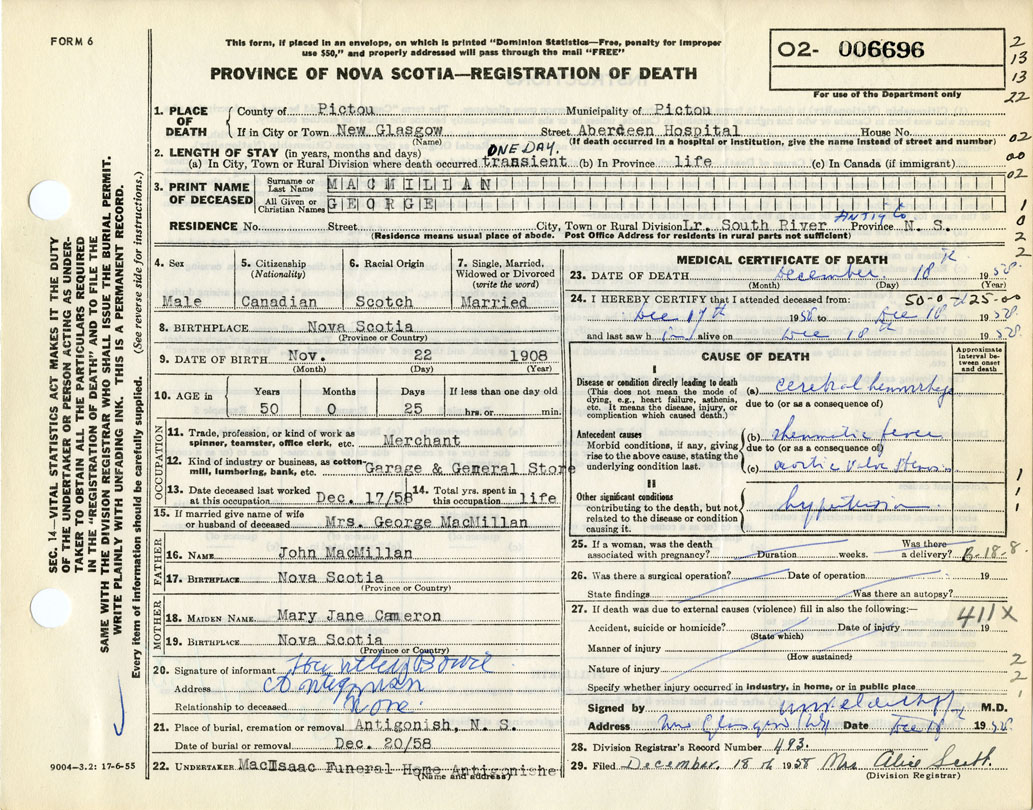 FORM 6
This form, if placed in an envelope, on which is printed "Dominion Statistics—Free, penalty for improper
use $50," and properly addressed will pass through the mail "FREE"
PROVINCE OF NOVA SCOTIA—REGISTRATION OF DEATH
02- 006696
For use of the Department only
2
13
13
22
02
00
02
1
0
2
2
1. PLACE OF DEATH
County of Pictou Municipality of Pictou
If in City or Town New Glasgow Street Aberdeen Hospital House No.
(Name) (If death occurred in a hospital or institution, give the name instead of street and number)
2. LENGTH OF STAY (in years, months and days) ONE DAY.
(a) In City, Town or Rural Division where death occurred transient (b) In Province life (c) In Canada (if immigrant)
3. PRINT NAME OF DECEASED
Surname or Last Name MACMILLAN
All Given or Christian Names GEORGE
RESIDENCE No. Street City, Town or Rural Division Lr. South River Antig Co Province N. S.
(Residence means usual place of abode. Post Office Address for residents in rural parts not sufficient)
4. Sex 5. Citizenship (Nationality) 6. Racial Origin 7. Single, Married, Widowed or Divorced (write the word)
Male Canadian Scotch Married
8. BIRTHPLACE Nova Scotia
(Province or Country)
9. DATE OF BIRTH Nov. 22 1908
(Month) (Day) (Year)
10. AGE in Years Months Days If less than one day old
50 0 25 hrs. or min.
OCCUPATION
11. Trade, profession, or kind of work as
spinner, teamster, office clerk, etc. Merchant
12. Kind of industry or business, as cotton-
mill, lumbering, bank, etc. Garage & General Store
13. Date deceased last worked
at this occupation Dec. 17/58
14. Total yrs. spent in
this occupation life
15. If married give name of wife
or husband of deceased Mrs. George MacMillan
FATHER
16. NAME John MacMillan
17. BIRTHPLACE Nova Scotia
(Province or Country)
MOTHER
18. MAIDEN NAME Mary Jane Cameron
19. BIRTHPLACE Nova Scotia
(Province or Country)
20. Signature of informant
Address Antigonish
Relationship to deceased None.
21. Place of burial, cremation or removal Antigonish, N. S.
Date of burial or removal Dec. 20/58
22. UNDERTAKER MacIsaac Funeral Home Antigonishe
(Name and address)
MEDICAL CERTIFICATE OF DEATH
23. DATE OF DEATH December 18th 1958
(Month) (Day) (Year)
24. I HEREBY CERTIFY that I attended deceased from: 50-0-25-00
Dec 17th 1958 to Dec 18 1958
and last saw him alive on Dec 18th 1958
CAUSE OF DEATH
Approximate interval between onset and death
I
Disease or condition directly leading to death
(This does not mean the mode of
dying, e.g., heart failure, asthenia,
etc. It means the disease, injury, or
complication which caused death.)
(a) cerebral hemorrhage
due to (or as a consequence of)
Antecedent causes
Morbid conditions, if any, giving
rise to the above cause, stating the
underlying condition last.
(b) rheumatic fever
due to (or as a consequence of)
(c) aortic valve stenosis
II
Other significant conditions
contributing to the death, but not
related to the disease or condition
causing it.
hypertension
1
1
1
1
25. If a woman, was the death
associated with pregnancy? Duration weeks. Was there
a delivery? B-18-8
26. Was there a surgical operation? Date of operation 19
State findings Was there an autopsy?
27. If death was due to external causes (violence) fill in also the following:— 411X
Accident, suicide or homicide? Date of injury 19
(State which)
Manner of injury
(How sustained)
Nature of injury
2
2
1
Specify whether injury occurred in industry, in home, or in public place
Signed by M.D.
Address New Glasgow NS Date Dec 18 1958
28. Division Registrar's Record Number 493.
29. Filed December. 18th 1958 Mrs Alice Scott.
(Division Registrar)
SEC. 14—VITAL STATISTICS ACT MAKES IT THE DUTY
OF THE UNDERTAKER OR PERSON ACTING AS UNDER-
TAKER TO OBTAIN ALL THE PARTICULARS REQUIRED
IN THE "REGISTRATION OF DEATH" AND TO FILE THE
SAME WITH THE DIVISION REGISTRAR WHO SHALL ISSUE THE BURIAL PERMIT.
WRITE PLAINLY WITH UNFADING INK. THIS IS A PERMANENT RECORD.
Every item of information should be carefully supplied. (See reverse side for instructions.)
9004—3.2: 17-6-55